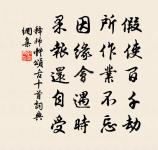 假使百千劫
所作業不忘
因緣會遇時
果報還自受
頌古十首詞典
網集